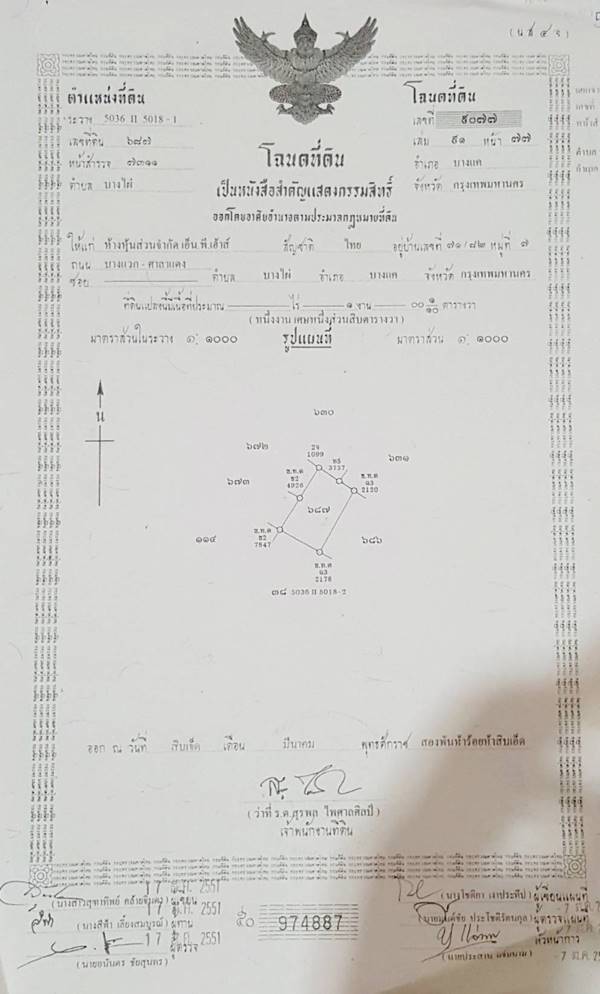 (น.ส. ๔ จ)
ตำแหน่งที่ดิน
ระวาง 5036 II 5018-1
เลขที่ดิน ๖๘๗
หน้าสำรวจ ๗๓๑๑
ตำบล บางไผ่
โฉนดที่ดิน
เลขที่ ๙๐๗๗
เล่ม ๙๑ หน้า ๗๗
อำเภอ บางแค
จังหวัด กรุงเทพมหานคร
โฉนดที่ดิน
เป็นหนังสือสำคัญแสดงกรรมสิทธิ์
ออกโดยอาศัยอำนาจตามประมวลกฎหมายที่ดิน
ให้แก่ ห้างหุ้นส่วนจำกัด เอ็น.พี.เฮ้าส์ สัญชาติ ไทย อยู่บ้านเลขที่ ๗๑/๘๒ หมู่ที่ ๗
ถนน บางแวก - ศาลาแดง
ซอย ตำบล บางไผ่ อำเภอ บางแค จังหวัด กรุงเทพมหานคร
ที่ดินแปลงนี้มีเนื้อที่ประมาณ ไร่ ๑ งาน ๐๐ ๑/๑๐ ตารางวา
(หนึ่งงาน เศษหนึ่งส่วนสิบตารางวา)
มาตราส่วนในระวาง ๑: ๑๐๐๐
รูปแผนที่
มาตราส่วน ๑: ๑๐๐๐
น
๖๓๐
๖๗๒
2ฯ
1099
ห5
3737
๖๓๑
๖๗๓
ส.ท.ด
ช2
4926
ส.ท.ด
ฉ3
2120
๖๘๗
๑๑๔
ส.ท.ด
ช2
7847
๖๘๖
ส.ท.ด
ฉ3
2178
๓๘ 5036 II 5018-2
ออก ณ วันที่ สิบเจ็ด เดือน มีนาคม พุทธศักราช สองพันห้าร้อยห้าสิบเอ็ด
(ว่าที่ ร.ต.สุรพล ไพศาลศิลป์)
เจ้าพนักงานที่ดิน
17 มี.ค. 2551
ผู้เขียน
17 มี.ค. 2551
(นางสีฟ้า เลี้ยงสมบูรณ์) ผู้ทาน
17 มี.ค. 2551
ผู้ตรวจ
(นายอนันตร ชัยสุนทร)
๕๐ 974887
ผู้เขียนแผนที่
ผู้ตรวจแผนที่
หัวหน้าการ